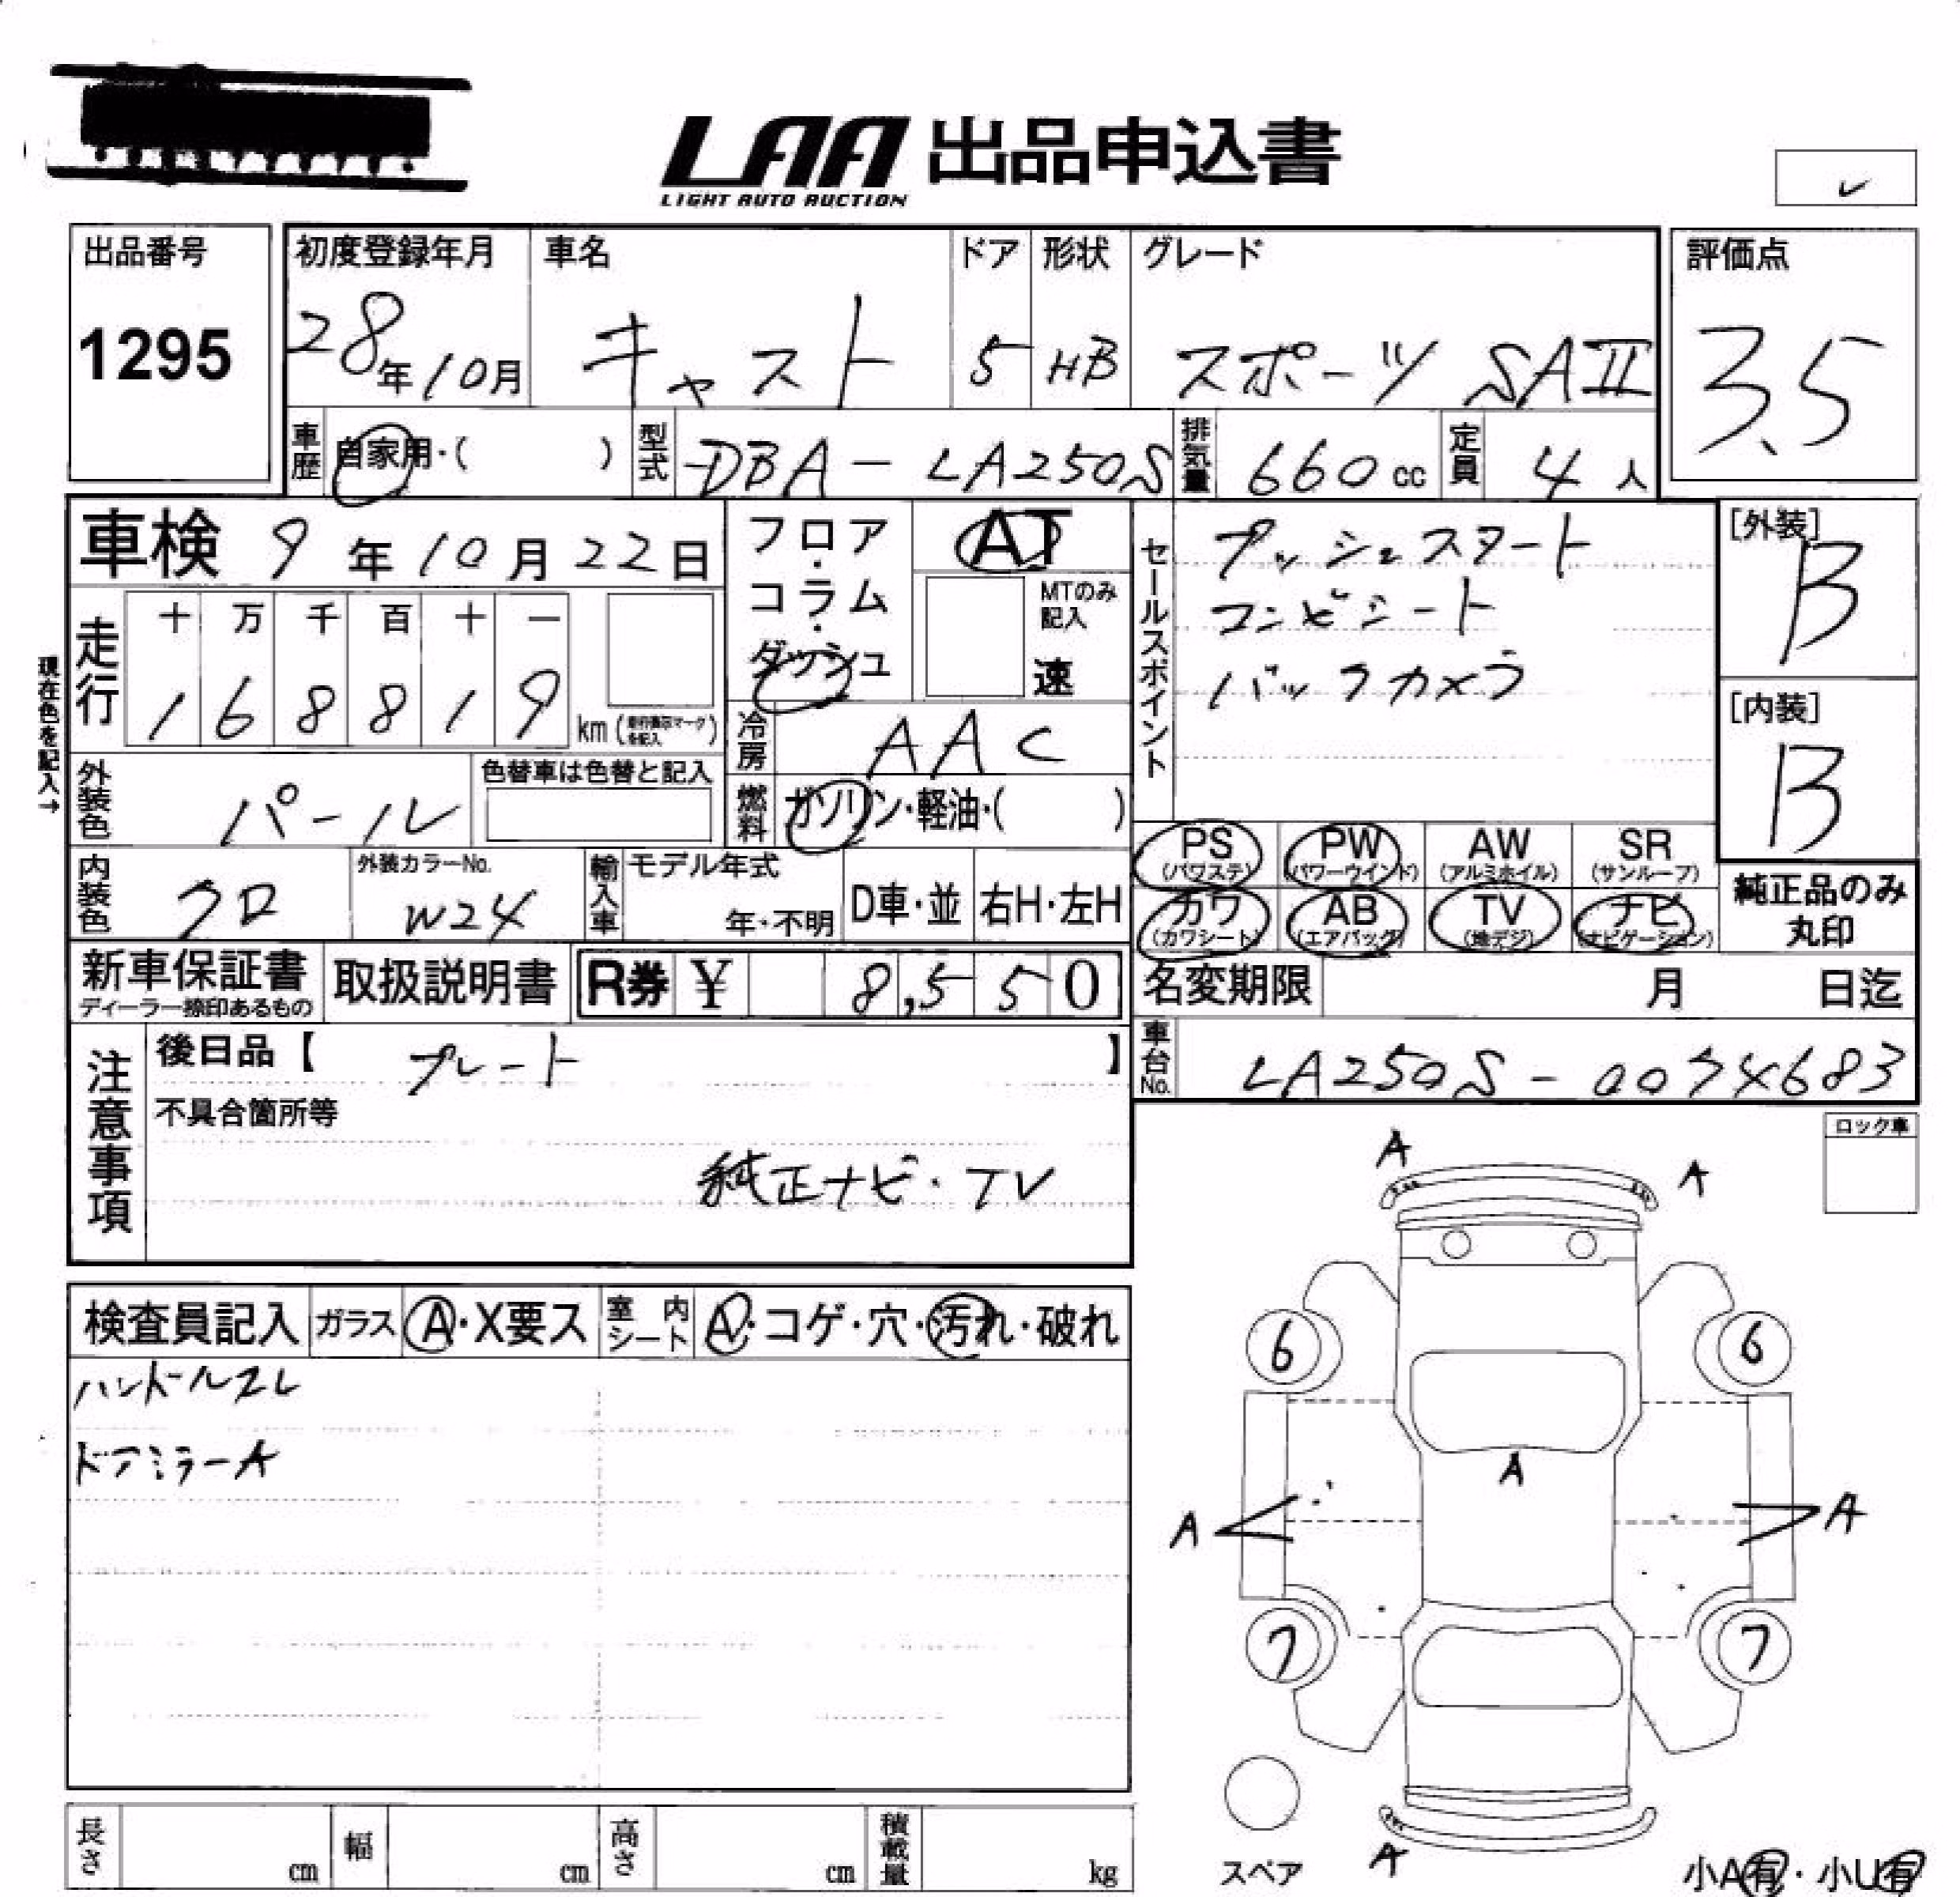 LAA 出品申込書
LIGHT AUTO AUCTION
出品番号
1295
初度登録年月
28年10月
車名
キャスト
ドア
5
形状
HB
グレード
スポーツ SAII
評価点
3.5
車歴 自家用・( )
型式 DBA-LA250S
排気量 660cc
定員 4人
車検 9年10月22日
走行
十 万 千 百 十 一
1 6 8 8 1 9 km(走行表示マークを記入)
現在色を記入→
フロア・コラム・ダッシュ
AT
MTのみ記入
速
冷房 AAC
燃料 ガソリン・軽油・( )
セールスポイント
プッシュスタート
コンビシート
バックカメラ
[外装]
B
[内装]
B
外装色 パール
色替車は色替と記入
内装色 クロ
外装カラーNo.
W24
輸入車 モデル年式
年・不明
D車・並 右H・左H
PS (パワステ) PW (パワーウインド) AW (アルミホイル) SR (サンルーフ)
カワ (カワシート) AB (エアバッグ) TV (地デジ) ナビ (ナビゲーション)
純正品のみ丸印
新車保証書
ディーラー捺印あるもの
取扱説明書
R券 ¥ 8,550
名変期限 月 日迄
車台No. LA250S-0074683
注意事項
後日品【 プレート 】
不具合箇所等
純正ナビ・TV
ロック車
検査員記入 ガラス A・X要ス 室内シート A・コゲ・穴・汚れ・破れ
ハンドルスレ
ドアミラーA
A
A
6 6
A
A A
7 7
A
スペア
小A有・小U有
長さ cm 幅 cm 高さ cm 積載量 kg